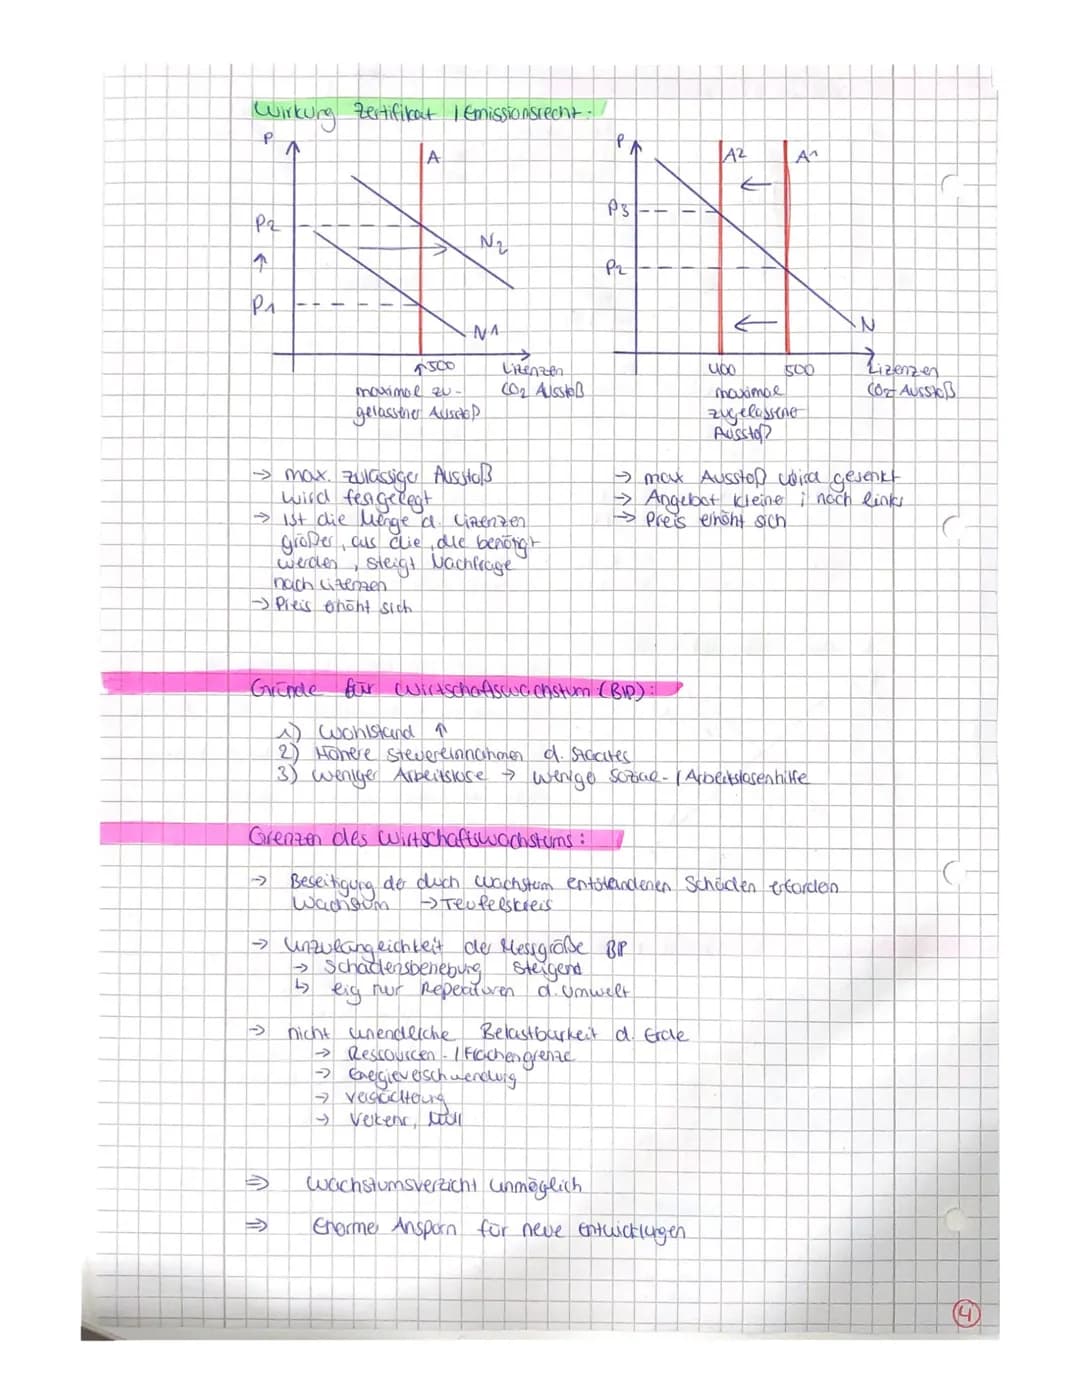 Wirkung Zertifikat / Emissionsrecht:
P
A
P2
↑
P1
N2
N1
500
Lizenzen
CO2 Ausstoß
maximal zu-
gelassener Ausstoß
P
A2
A1
←
P3
P2
←
N
400
500
Lizenzen
CO2-Ausstoß
maximal
zugelassene
Ausstoß
→ max. zulässiger Ausstoß
wird festgelegt
→ Ist die Menge d. Lizenzen
größer, als die, die benötigt
werden, steigt Nachfrage
nach Lizenzen
→ Preis erhöht sich
→ max Ausstoß wird gesenkt
→ Angebot kleiner ; nach links
→ Preis erhöht sich
Gründe für Wirtschaftswachstum (BIP):
1) Wohlstand ↑
2) Höhere Steuereinnahmen d. Staates
3) weniger Arbeitslose → wenige Sozial- / Arbeitslosenhilfe
Grenzen des Wirtschaftswachstums:
→ Beseitigung der duch Wachstum entstandenen Schäden erfordern
Wachstum → Teufelskreis
→ Unzulänglichkeit der Messgröße BIP
→ Schadensbehebung steigend
↳ eig nur Reparaturen d. Umwelt
→ nicht unendliche Belastbarkeit d. Erde
→ Ressourcen- / Flächengrenze
→ Energieverschwendung
→
→ Verkehr, Müll
⇒ Wachstumsverzicht unmöglich
⇒ Enormer Ansporn für neue Entwicklungen
4